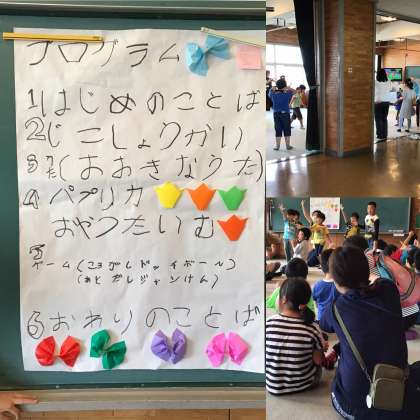 プログラム
1はじめのことば
2じこしょうかい
3うた(おおきなうた)
4パプリカ
おやつたいむ
5ゲーム(ころがしドッイボール)
(あとだしジャンけん)
6おわりのことば